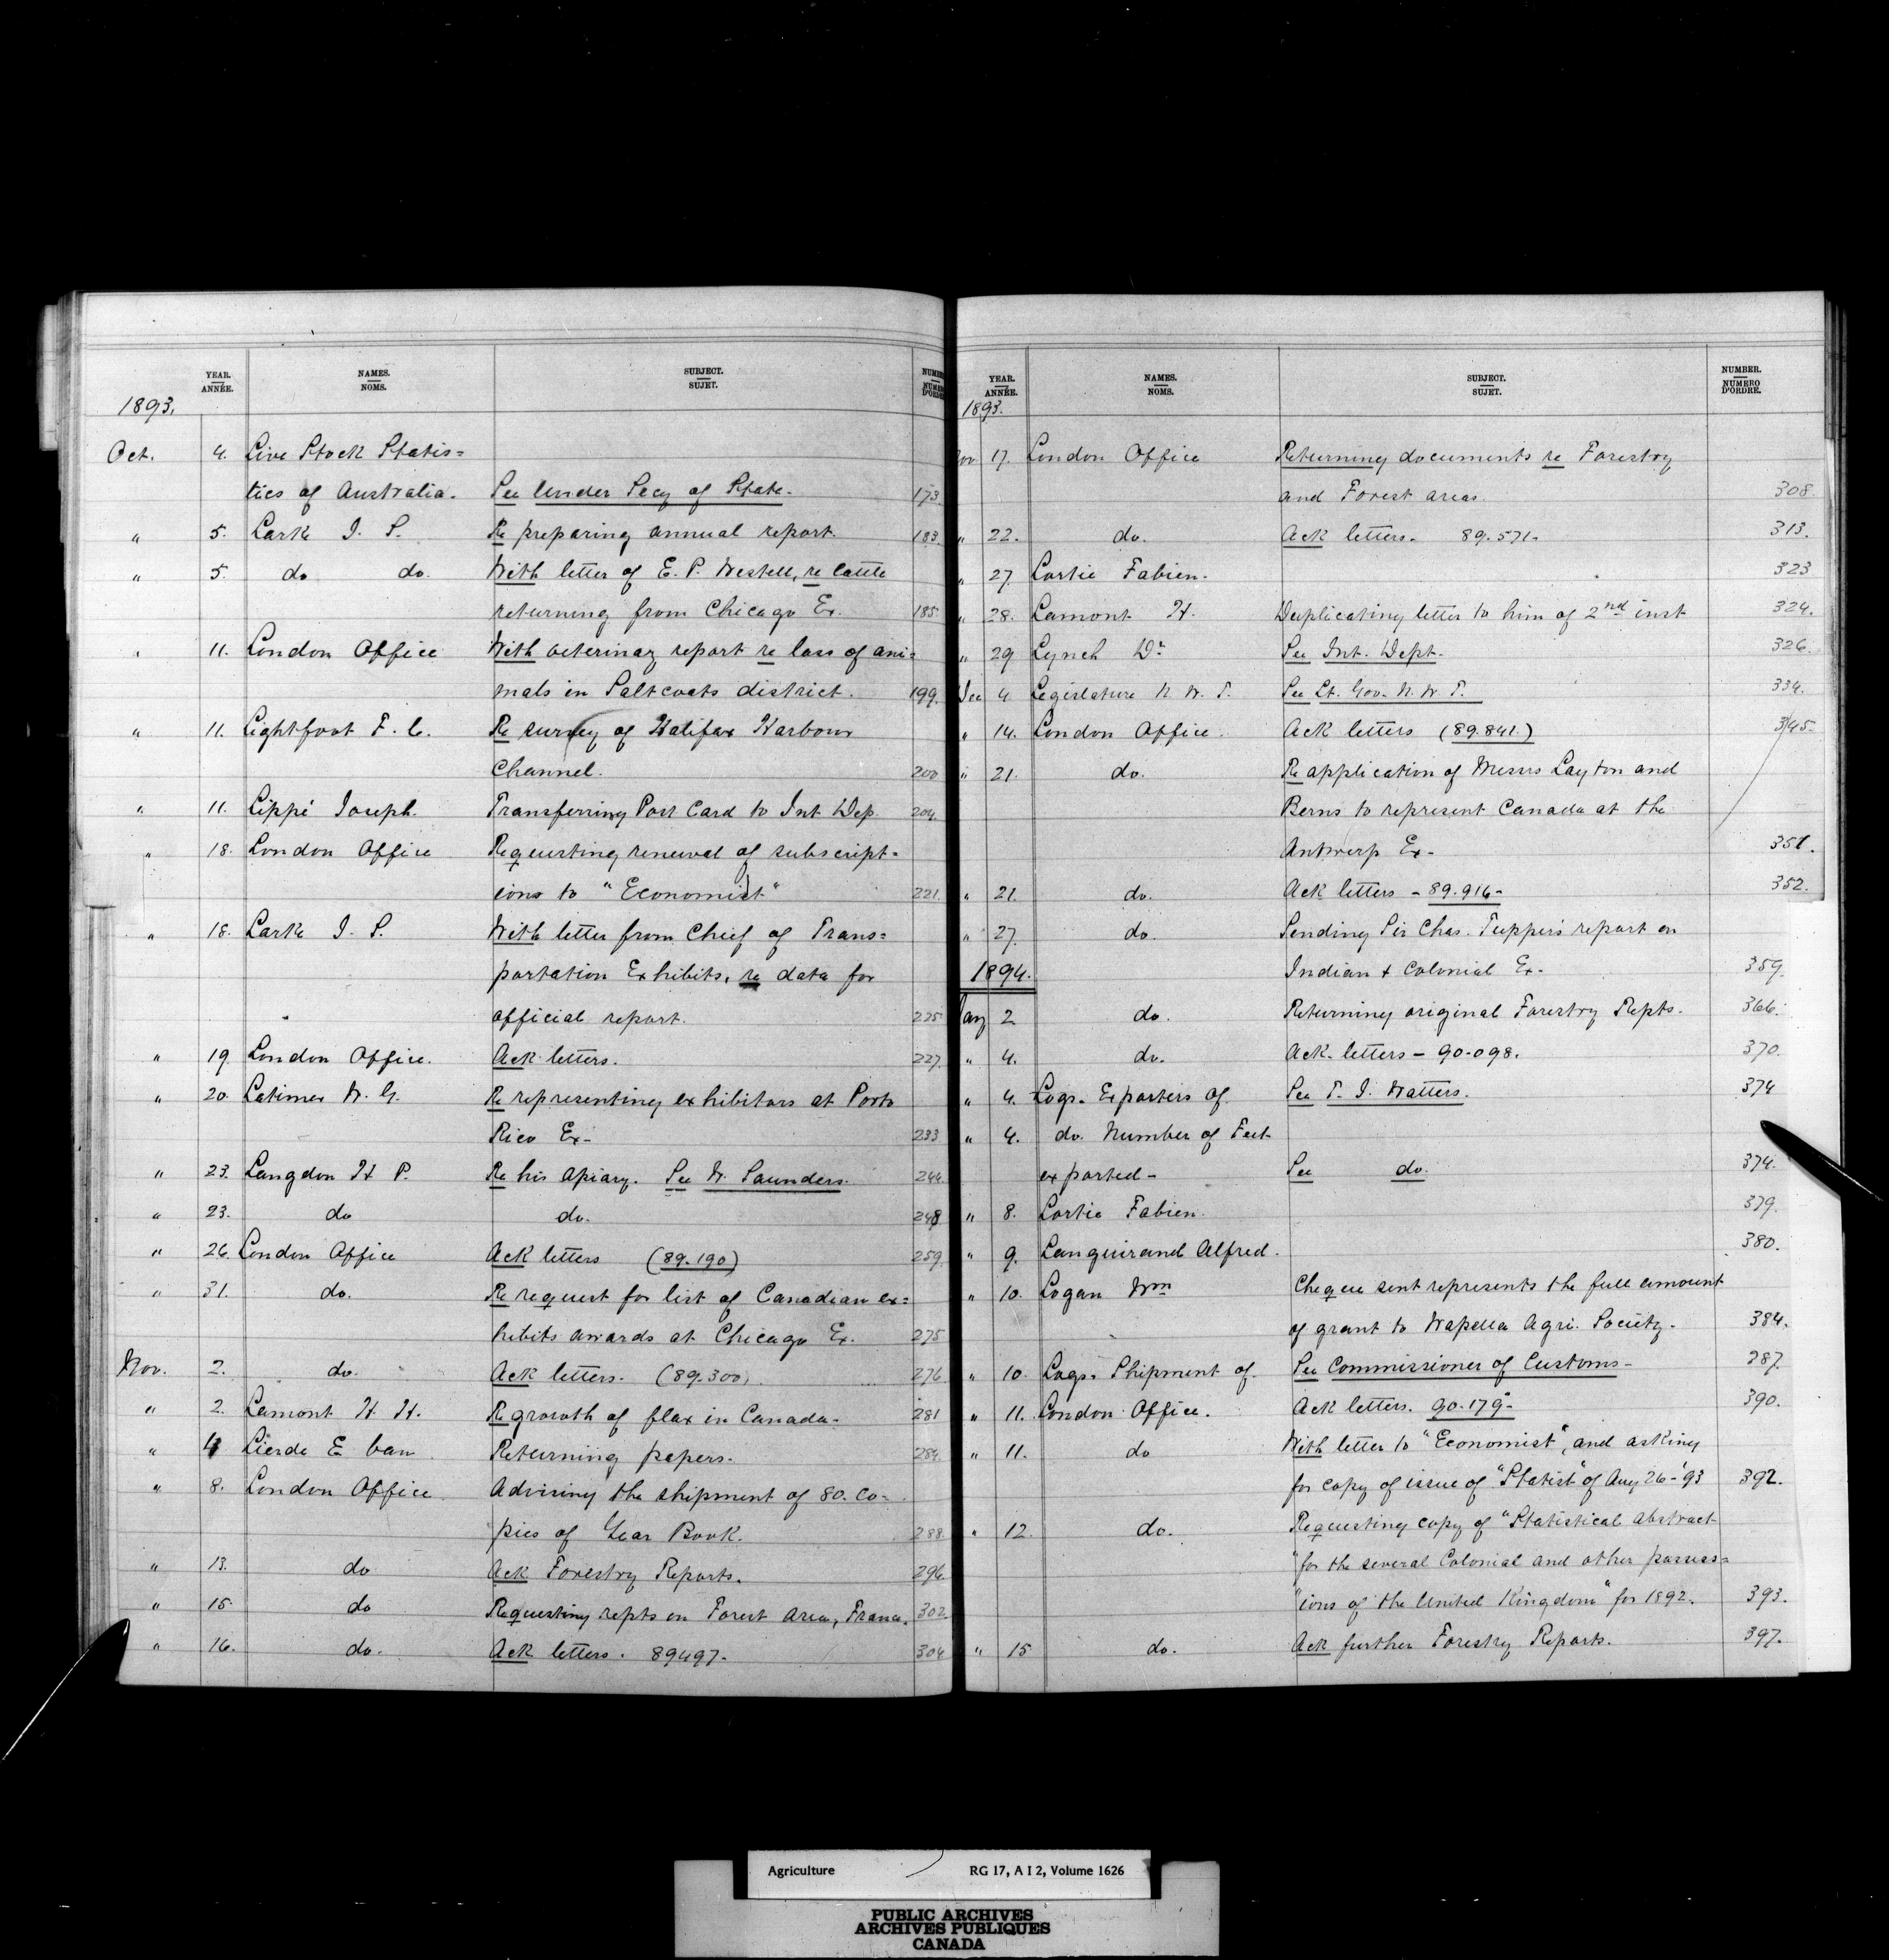 YEAR. ANNÉE. NAMES. NOMS. SUBJECT. SUJET. NUMBER NUMÉRO D'ORDRE
1893.
Oct. 4. Live Stock Statis=
tics of Australia. See Under Secy of State. 173
" 5. Lark I. S. Re preparing annual report. 183
" 5. do do. With letter of E. P. Westell, re cattle
returning from Chicago Ex. 185
" 11. London Office With veterinary report re loss of ani=
mals in Saltcoats district. 199
" 11. Lightfoot F. C. Re survey of Halifax Harbour
Channel. 200
" 11. Lippé Joseph. Transferring Post Card to Int Dep. 204
" 18. London Office Requesting renewal of subscript-
ions to "Economist" 221.
" 18. Lark I. S. With letter from Chief of Trans=
portation Exhibits, re data for
official report. 225
" 19. London Office. Ack letters. 227
" 20. Latimer W. G. Re representing exhibitors at Porto
Rico Ex- 233
" 23. Langdon H P. Re his apiary. See W. Saunders. 244
" 23. do do. 248
" 26. London Office Ack letters (89.190) 259
" 31. do. Re request for list of Canadian ex=
hibits awards at Chicago Ex. 275
Nov. 2. do. Ack letters. (89.300) 276
" 2. Lamont H. H. Re growth of flax in Canada. 281
" 4 Lierde E van Returning papers. 284
" 8. London Office Advising the shipment of 80. Co-
pies of Year Book. 288.
" 13. do Ack Forestry Reports. 296
" 15 do Requesting repts on Forest Area, France. 302
" 16. do. Ack letters. 89497. 304
YEAR. ANNÉE. NAMES. NOMS. SUBJECT. SUJET. NUMBER. NUMÉRO D'ORDRE.
1893.
Nov 17. London Office Returning documents re Forestry
and Forest areas. 308.
" 22. do. Ack letters. 89.571. 313.
" 27. Lortie Fabien. 323
" 28. Lamont H. Duplicating letter to him of 2nd inst 324.
" 29 Lynch Dr See Int. Dept. 326.
Dec 4 Legislature N. W. T. See Lt. Gov. N. W T. 334.
" 14. London Office. Ack letters (89.841.) 345.
" 21. do. Re application of Messrs Layton and
Berns to represent Canada at the
Antwerp Ex- 351.
" 21. do. Ack letters - 89.916- 352.
" 27. do. Sending Sir Chas. Tupper's report on
1894. Indian & Colonial Ex. 359.
Jany 2 do. Returning original Forestry Repts. 366.
" 4. do. Ack. letters - 90.098. 370.
" 4. Logs. Exporters of. See T. J. Watters. 374
" 4. do. Number of Feet
exported- See do. 374.
" 8. Lortie Fabien. 379.
" 9. Languirand Alfred. 380.
" 10. Logan Wm Cheque sent represents the full amount
of grant to Wapella Agri. Society. 384.
" 10. Logs. Shipment of. See Commissioner of Customs- 387
" 11. London Office. Ack letters. 90.179- 390.
" 11. do With letter to "Economist", and asking
for copy of issue of "Statist" of Aug 26-'93 392.
" 12. do. Requesting copy of "Statistical Abstract
"for the several Colonial and other possess=
"ions of the United Kingdom" for 1892. 393.
" 15 do. Ack further Forestry Reports. 397.
Agriculture RG 17, A I 2, Volume 1626
PUBLIC ARCHIVES
ARCHIVES PUBLIQUES
CANADA